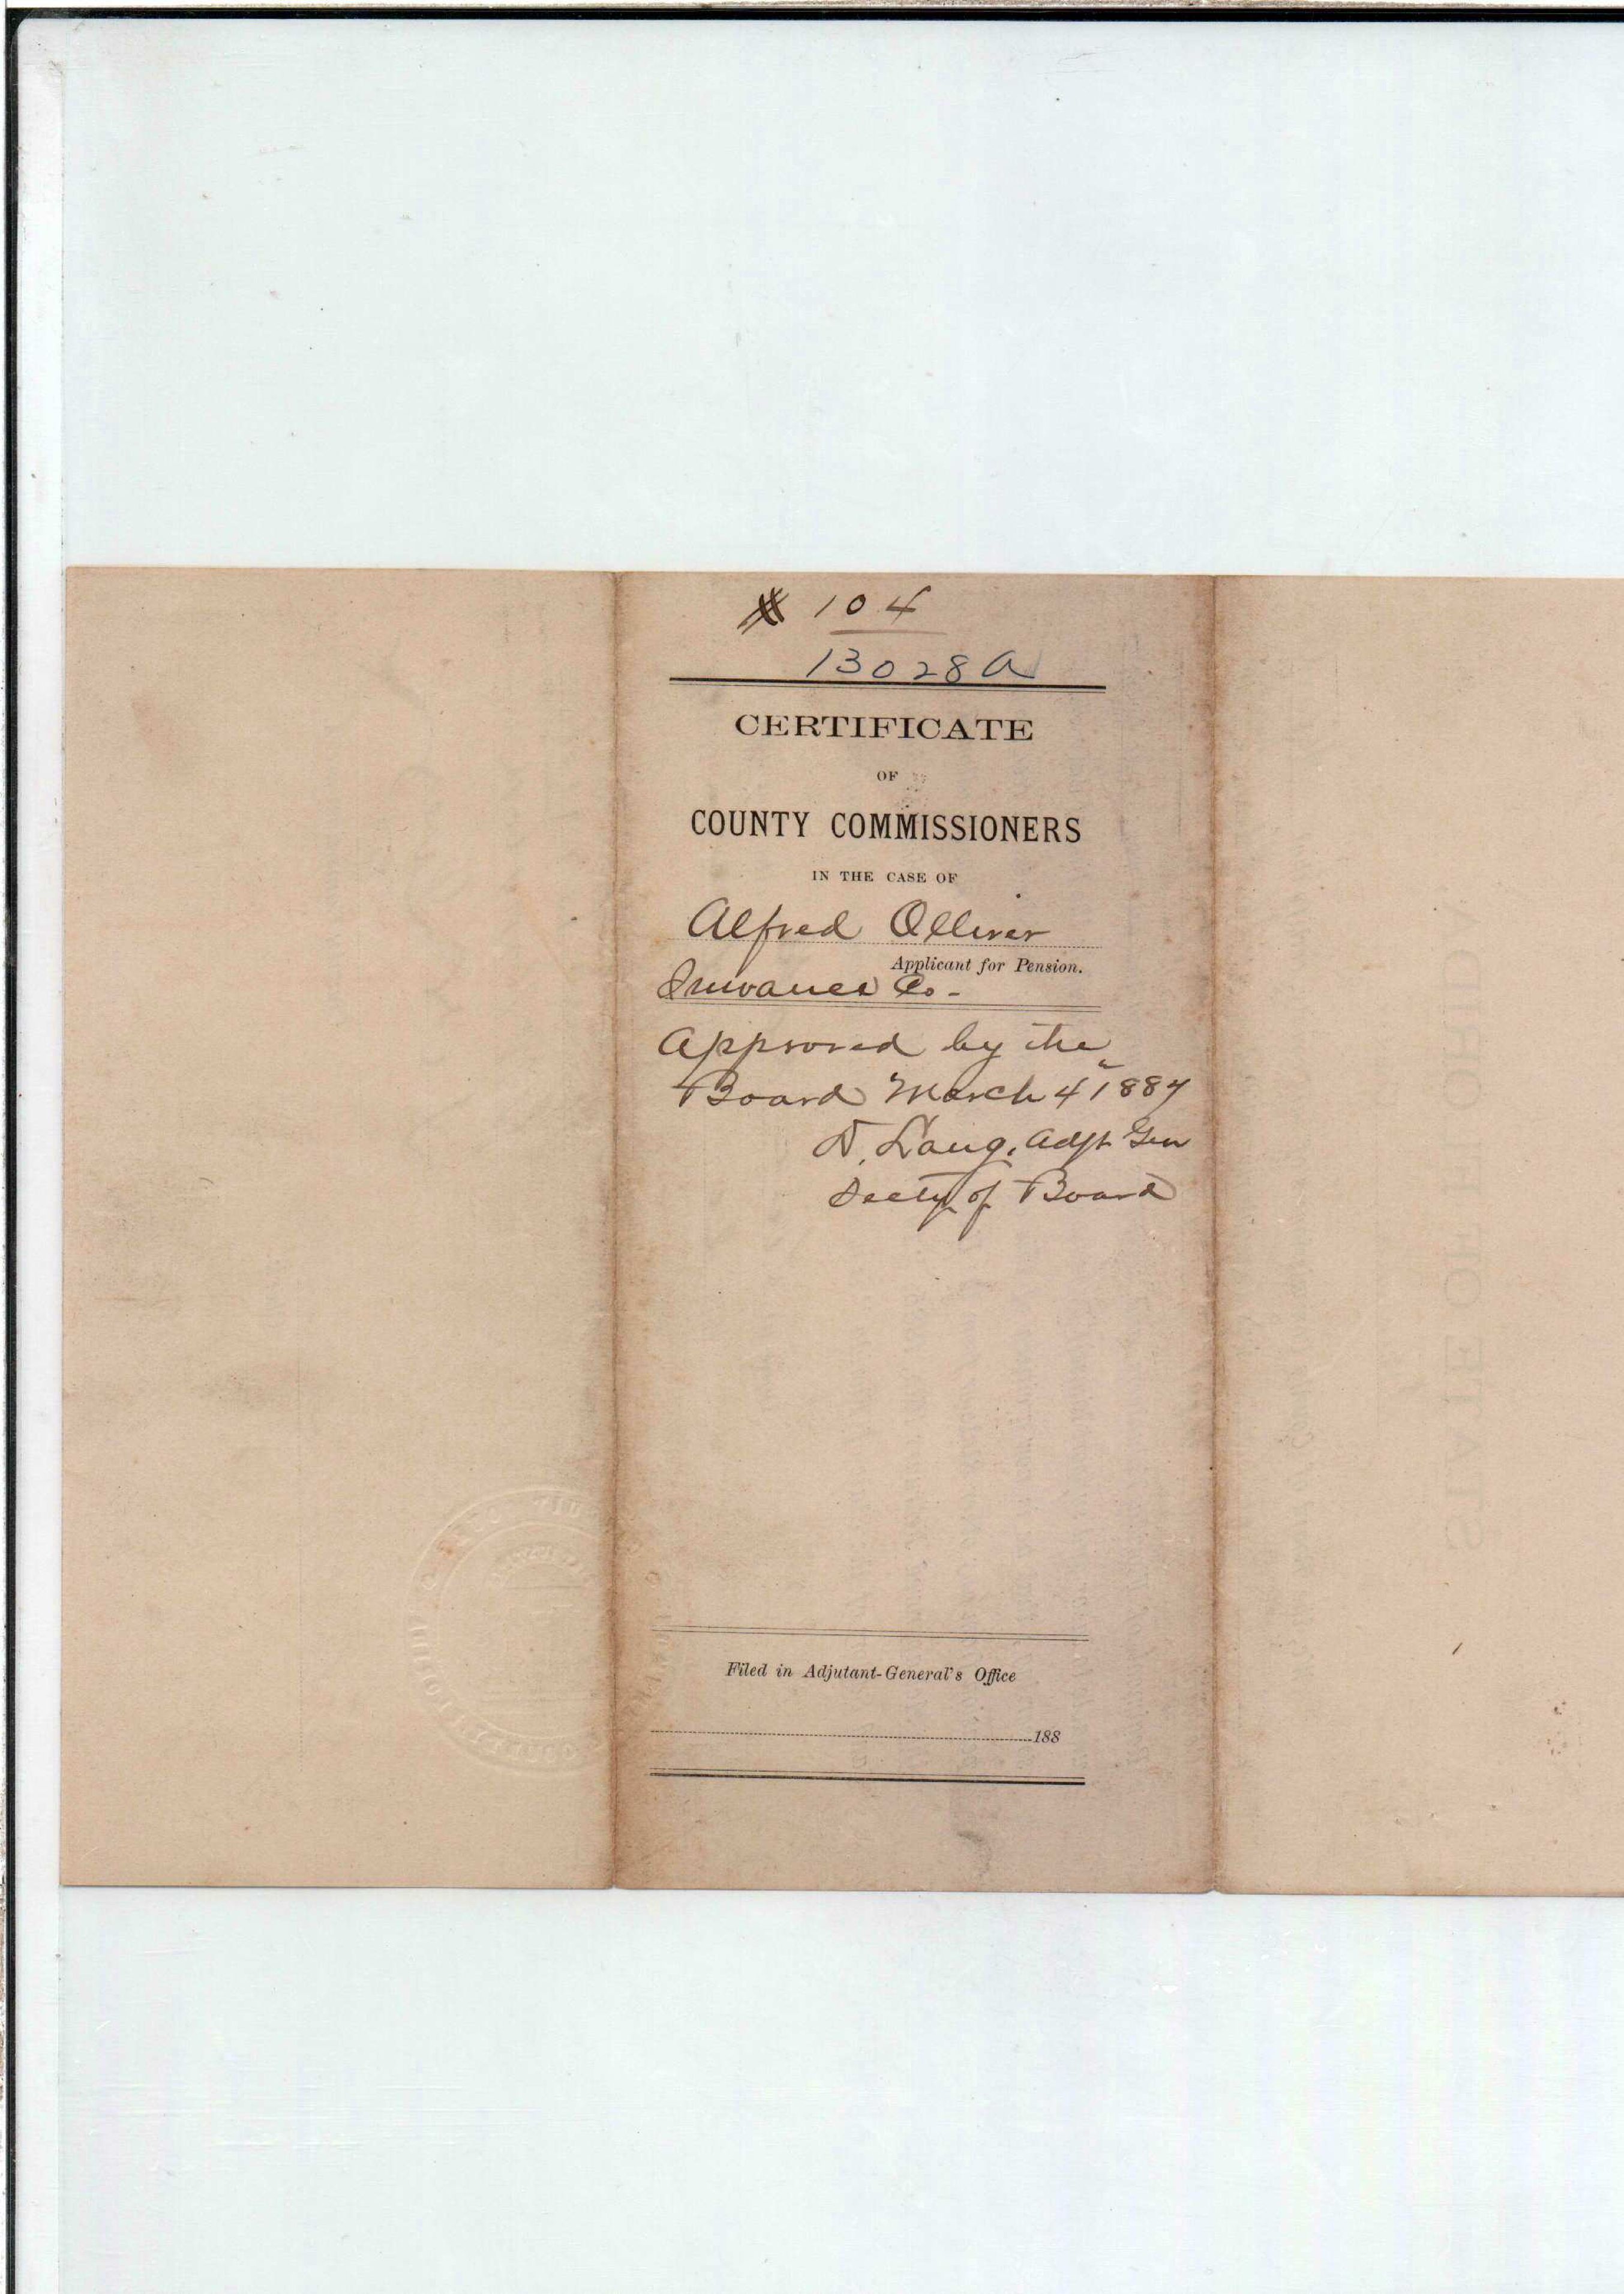 # 104
13028A
CERTIFICATE
OF
COUNTY COMMISSIONERS
IN THE CASE OF
Alfred Olliver
Applicant for Pension.
Suwanee Co-
Approved by the
Board March 4" 1887
D. Lang, Adjt Gen
Secty of Board
Filed in Adjutant-General's Office
188